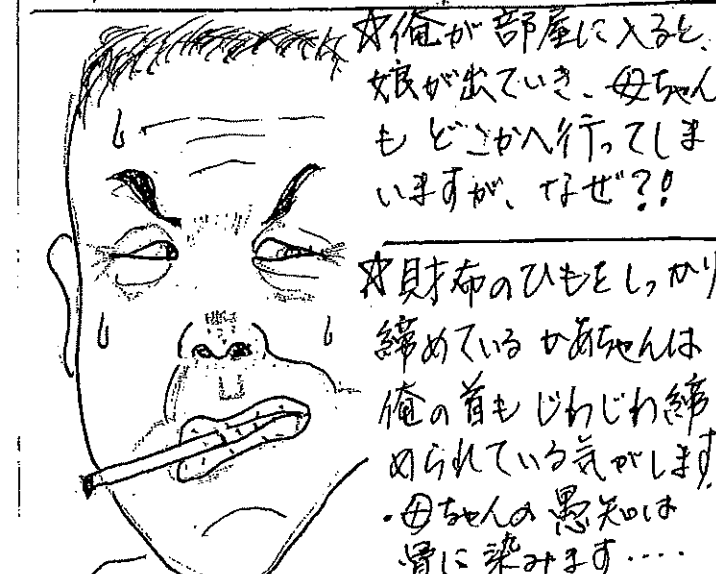 ☆俺が部屋に入ると、
娘が出ていき、母ちゃん
も どこかへ行ってしま
いますが、なぜ?!
☆財布のひもをしっかり
締めている かあちゃんは
俺の首も じわじわ締
められている気がします
・母ちゃんの愚知は
骨に染みます‥‥